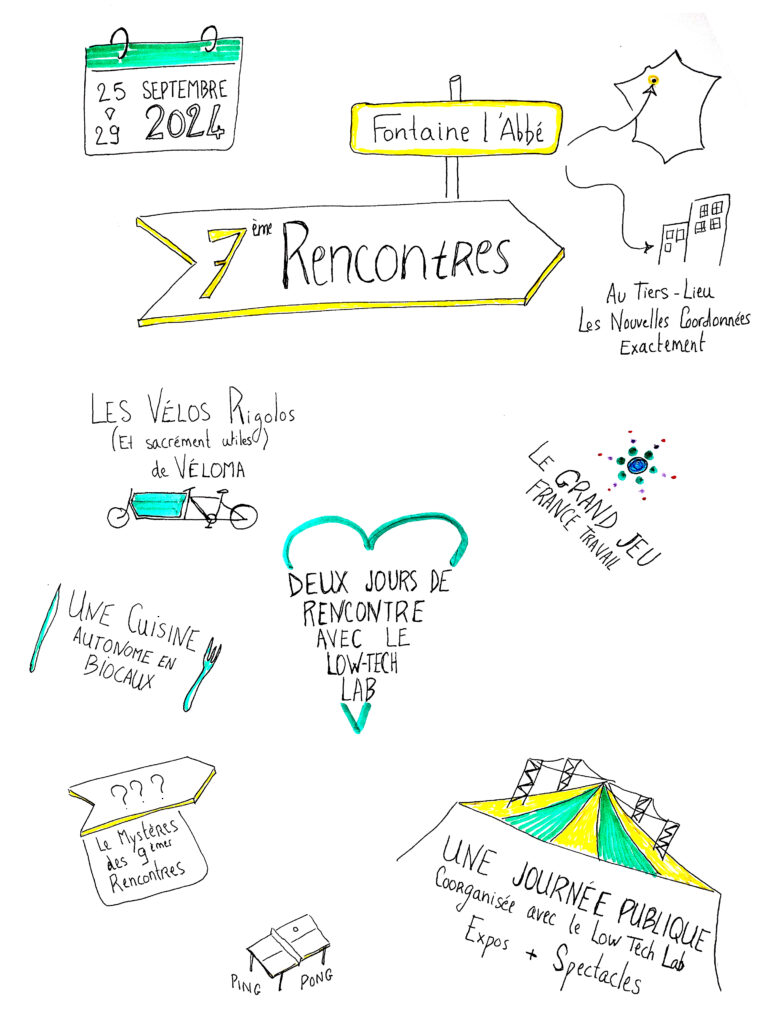 25 SEPTEMBRE
29 2024
Fontaine l'Abbé
7ème Rencontres
Au Tiers-Lieu
Les Nouvelles Coordonnées
Exactement
LES VÉLOS Rigolos
(Et sacrément utiles)
de VÉLOMA
LE GRAND JEU
FRANCE TRAVAIL
UNE CUISINE
AUTONOME EN
BIOCAUX
DEUX JOURS DE
RENCONTRE
AVEC LE
LOW-TECH
LAB
???
Le Mystères
des 9èmes
Rencontres
UNE JOURNÉE PUBLIQUE
Coorganisée avec le Low Tech Lab
Expos + Spectacles
PING PONG